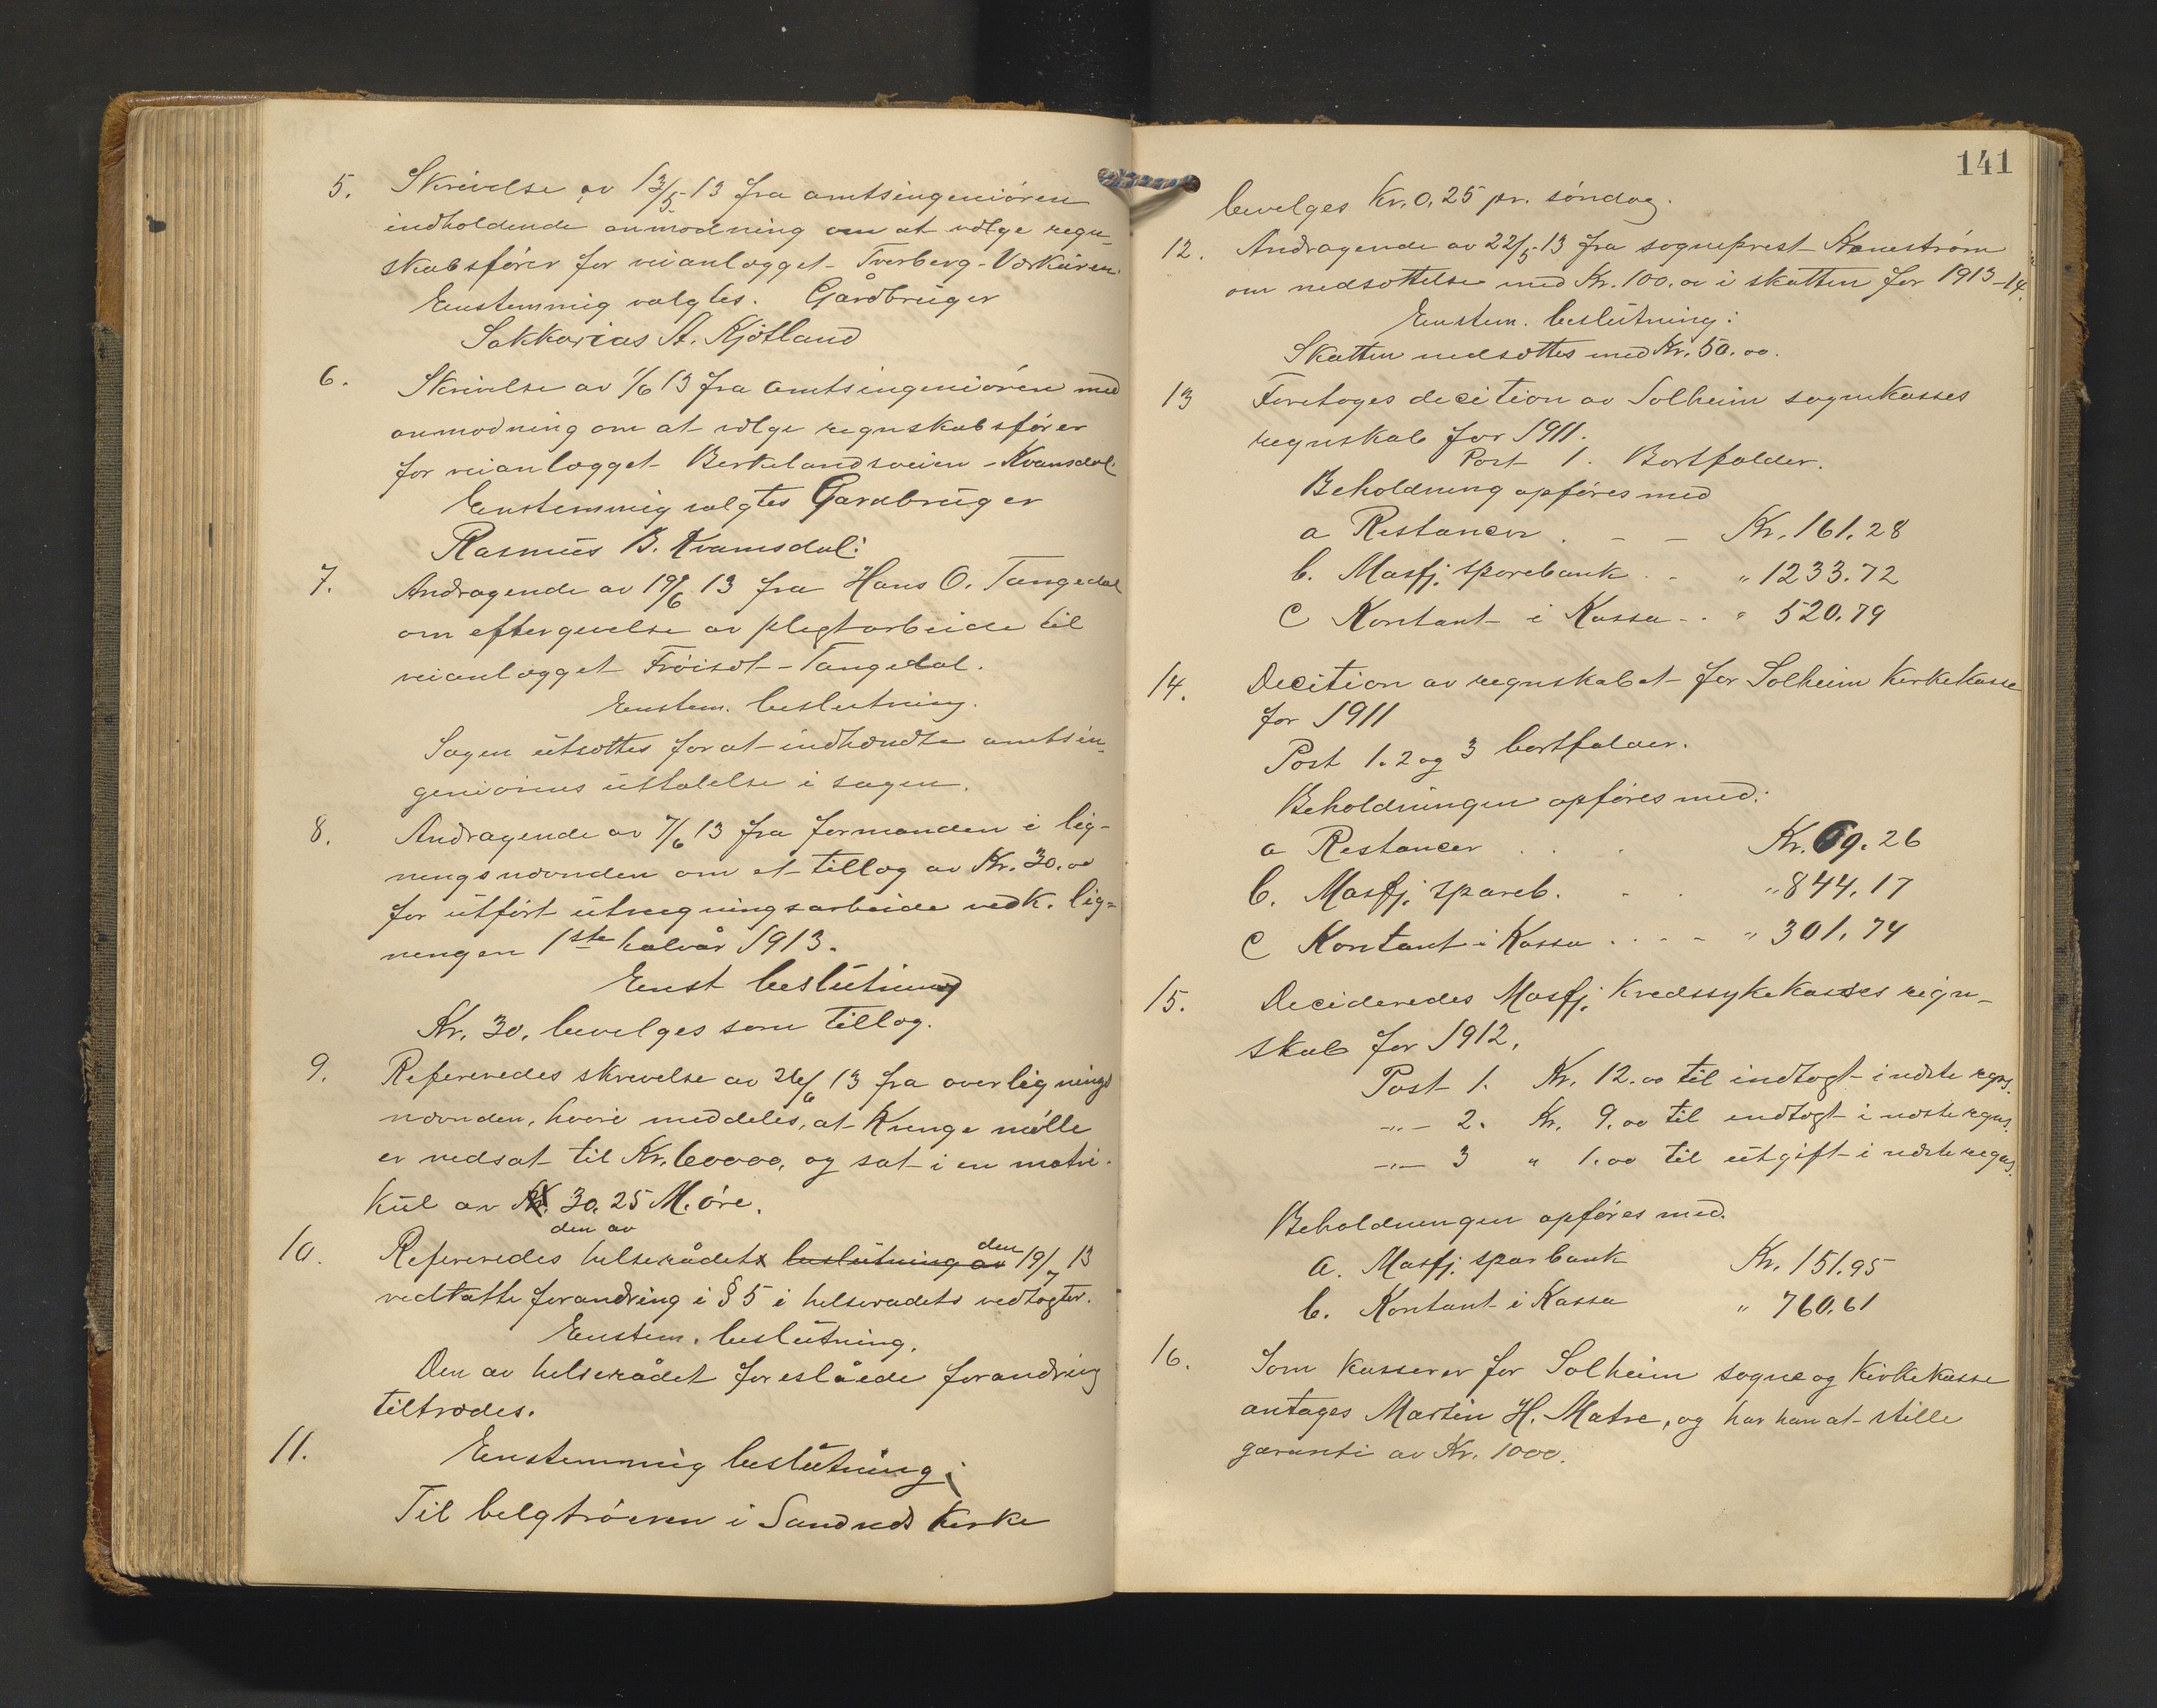 5. Skrivelse av 13/5 13 fra amtsingeniören
indholdende anmodning om at vælge regn-
skabsfører for veianlægget Tverberg - Værküren.
Enstemmig valgtes. Gårdbrüger
Sakkarias A. Kjötland
6. Skrivelse av 1/6 13 fra amtsingeniören med
anmodning om at vælge regnskabsfører
for veianlægget Berkelandsveien - Kvamsdal.
Enstemmig valgtes Gardbrüger
Rasmüs B. Kvamsdal:
7. Andragende av 19/6 13 fra Hans O. Tangedal
om eftergivelse av plegtarbeide til
veianlægget Fröiset - Tangedal.
Enstem. beslutning.
Sagen ütsættes for at indhændte amtsin-
geniörens üttalelse i sagen.
8. Andragende av 7/6 13 fra formanden i lig-
ningsnævnden om et tillæg av Kr. 30.00
for ütfört ütregningsarbeide vedk. lig-
ningen 1ste halvår 1913.
Enst beslütning
Kr. 30. bevilges som tillæg.
9. Refereredes skrivelse av 26/6 13 fra overlignings
nævnden, hvori meddeles, at Krenge mölle
er nedsat til Kr. 60000, og sat i en matri-
kül av Mk. 30.25 M. öre.
den av
10. Refereredes helserådets beslütning av den 19/7 13
vedtatte forandring i § 5 i helseradets vedtægter.
Enstem. beslütning.
Den av helserådet foreslåede forandring
tiltrædes.
11. Enstemmig beslütning;
Til belgtröeren i Sandnes Kirke
141
bevilges Kr. 0,25 pr. søndag.
12. Andragende av 22/5 13 fra sogneprest Kanestrøm
om nedsættelse med Kr. 100.00 i skatten for 1913-14.
Enstem. beslütning:
Skatten nedsættes med Kr. 50.00.
13 Foretoges decition av Solheim sognekasses
regnskab for 1911.
Post 1. Bortfalder.
Beholdning opføres med
a Restancer . - - Kr. 161.28
b. Masfj. sparebank . - " 1233.72
c Kontant i Kassa - . " 520.79
14. Decition av regnskabet for Solheim Kirkekasse
for 1911
Post 1. 2 og 3 bortfalder.
Beholdningen opføres med:
a Restancer . . . Kr. 69.26
b. Masfj. spareb. . . " 844.17
c Kontant i Kassa . . - - " 301.74
15. Decideredes Masfj. Kredssykekasses regn-
skab for 1912.
Post 1. Kr. 12.00 til indtægt i næste regns.
-"- 2. Kr. 9.00 til indtægt i næste regns.
-"- 3 " 1.00 til ütgift i næste regns.
Beholdningen opføres med.
a. Masfj. sparbank Kr. 151.95
b. Kontant i Kassa " 760.61
16. Som kasserer for Solheim sogne og Kirkekasse
antages Martin H. Matre, og har han at stille
garanti av Kr. 1000.